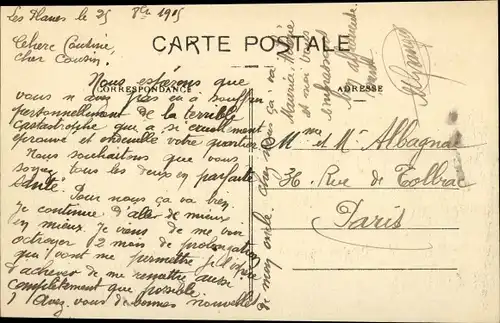 Les Planes le 25 8bre 1915
CARTE POSTALE
CORRESPONDANCE
ADRESSE
Chère Cousine,
cher Cousin.
Nous espérons que
vous n'avez pas eu à souffrir
personnellement de la terrible
catastrophe qui a si cruellement
éprouvé et endeuillé votre quartier
Nous souhaitons que vous
soyez tous les deux en parfaite
santé.
Pour nous ça va bien.
Je continue d'aller de mieux
en mieux. Je viens de me voir
octroyer 2 mois de prolongation
qui vont me permettre je l'espère
d'achever de me remettre aussi
complètement que possible.
Avez vous de bonnes nouvelles
de mon oncle. Chez nous ça va
Maurice
et moi vous
embrassons
Mme et Mr Albagnac
36, Rue de Tolbiac
Paris